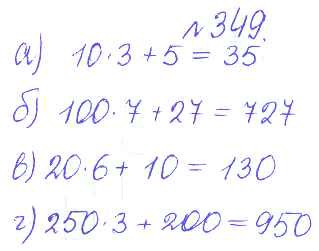 №349.
а) 10·3+5=35
б) 100·7+27=727
в) 20·6+10=130
г) 250·3+200=950